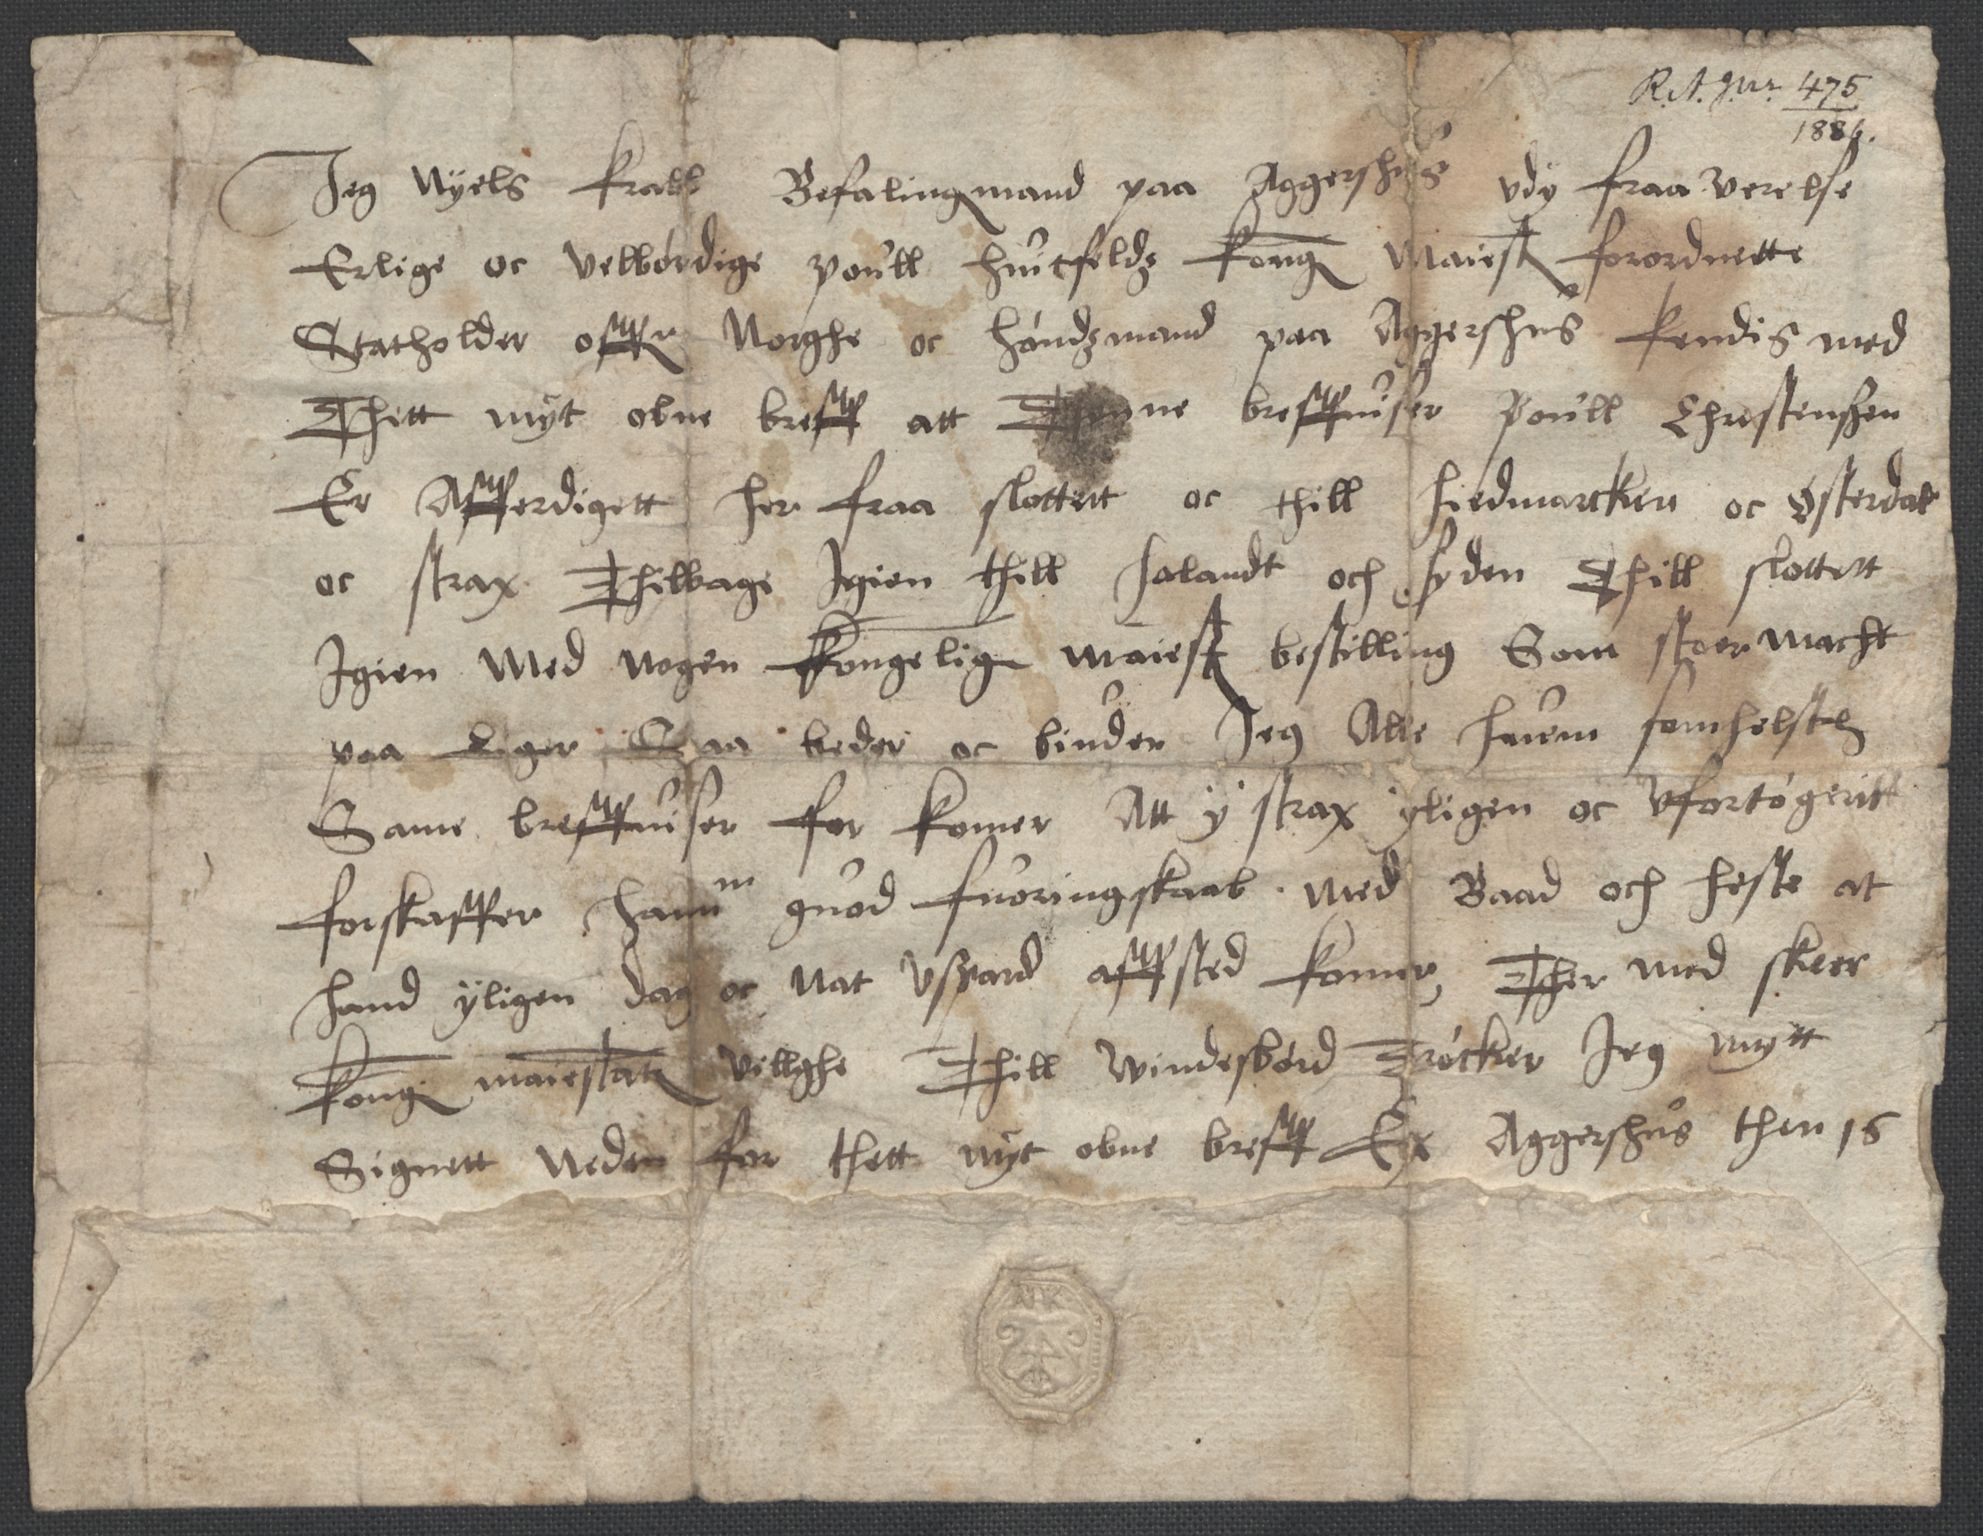 R.A. Jnr. 475
1886.
Jeg Nyels Krabb Befalingmand paa Aggershus vdy fraa verelse
Erlige oc velbørdige poull huitfeldz Kong Maiestz forordnette
Statholder offuer Norghe oc høudzmand paa Aggershus kendis med
Thett myt obne breff att Thenne breffuiser Poull Chrestenssen
Er Afferdigett her fraa slottett oc thill Hiedmarcken oc Østerdal
oc strax Thilbage Igien thill Solandt och syden Thill slottett
Igien Med Nogen Kongelig maiestz bestilling Som stoer macht
paa liger Saa beder oc binder Jeg Alle huem somhelst
Same breffuiser for komer Att y strax yligen oc Vfortøgeritt
forskaffer hannum guod fuoringskaab Med Baad och heste at
hand yligen dag oc Nat Vspard affsted komer, Ther med skeer
Kong maiestatz villghe Thill Windesbørd Trøcker Jeg mytt
Signett Neden for thett myt obne breff Ex Aggershus then 16
NK